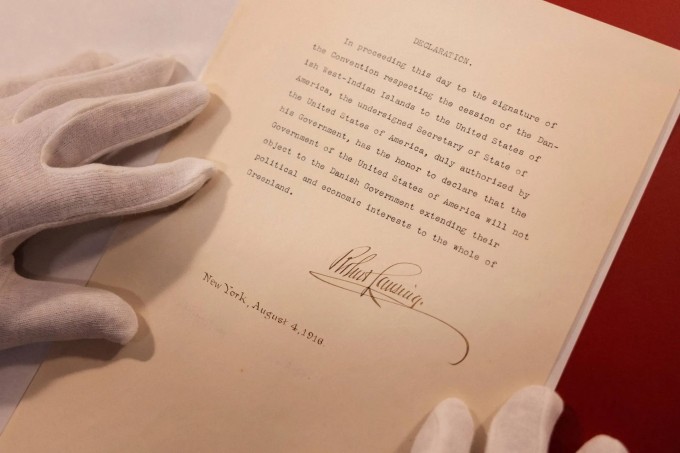 DECLARATION.
In proceeding this day to the signature of
the Convention respecting the cession of the Dan-
ish West-Indian Islands to the United States of
America, the undersigned Secretary of State of
the United States of America, duly authorized by
his Government, has the honor to declare that the
Government of the United States of America will not
object to the Danish Government extending their
political and economic interests to the whole of
Greenland.
Robert Lansing.
New York, August 4, 1916.